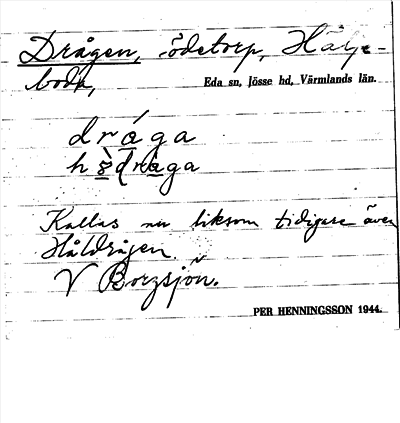 Drågen, ödetorp, Härje-
boda,
Eda sn, Jösse hd, Värmlands län.
dråga
Kallas nu liksom tidigare även
Håldrågen.
V Borgsjön.
PER HENNINGSSON 1944.